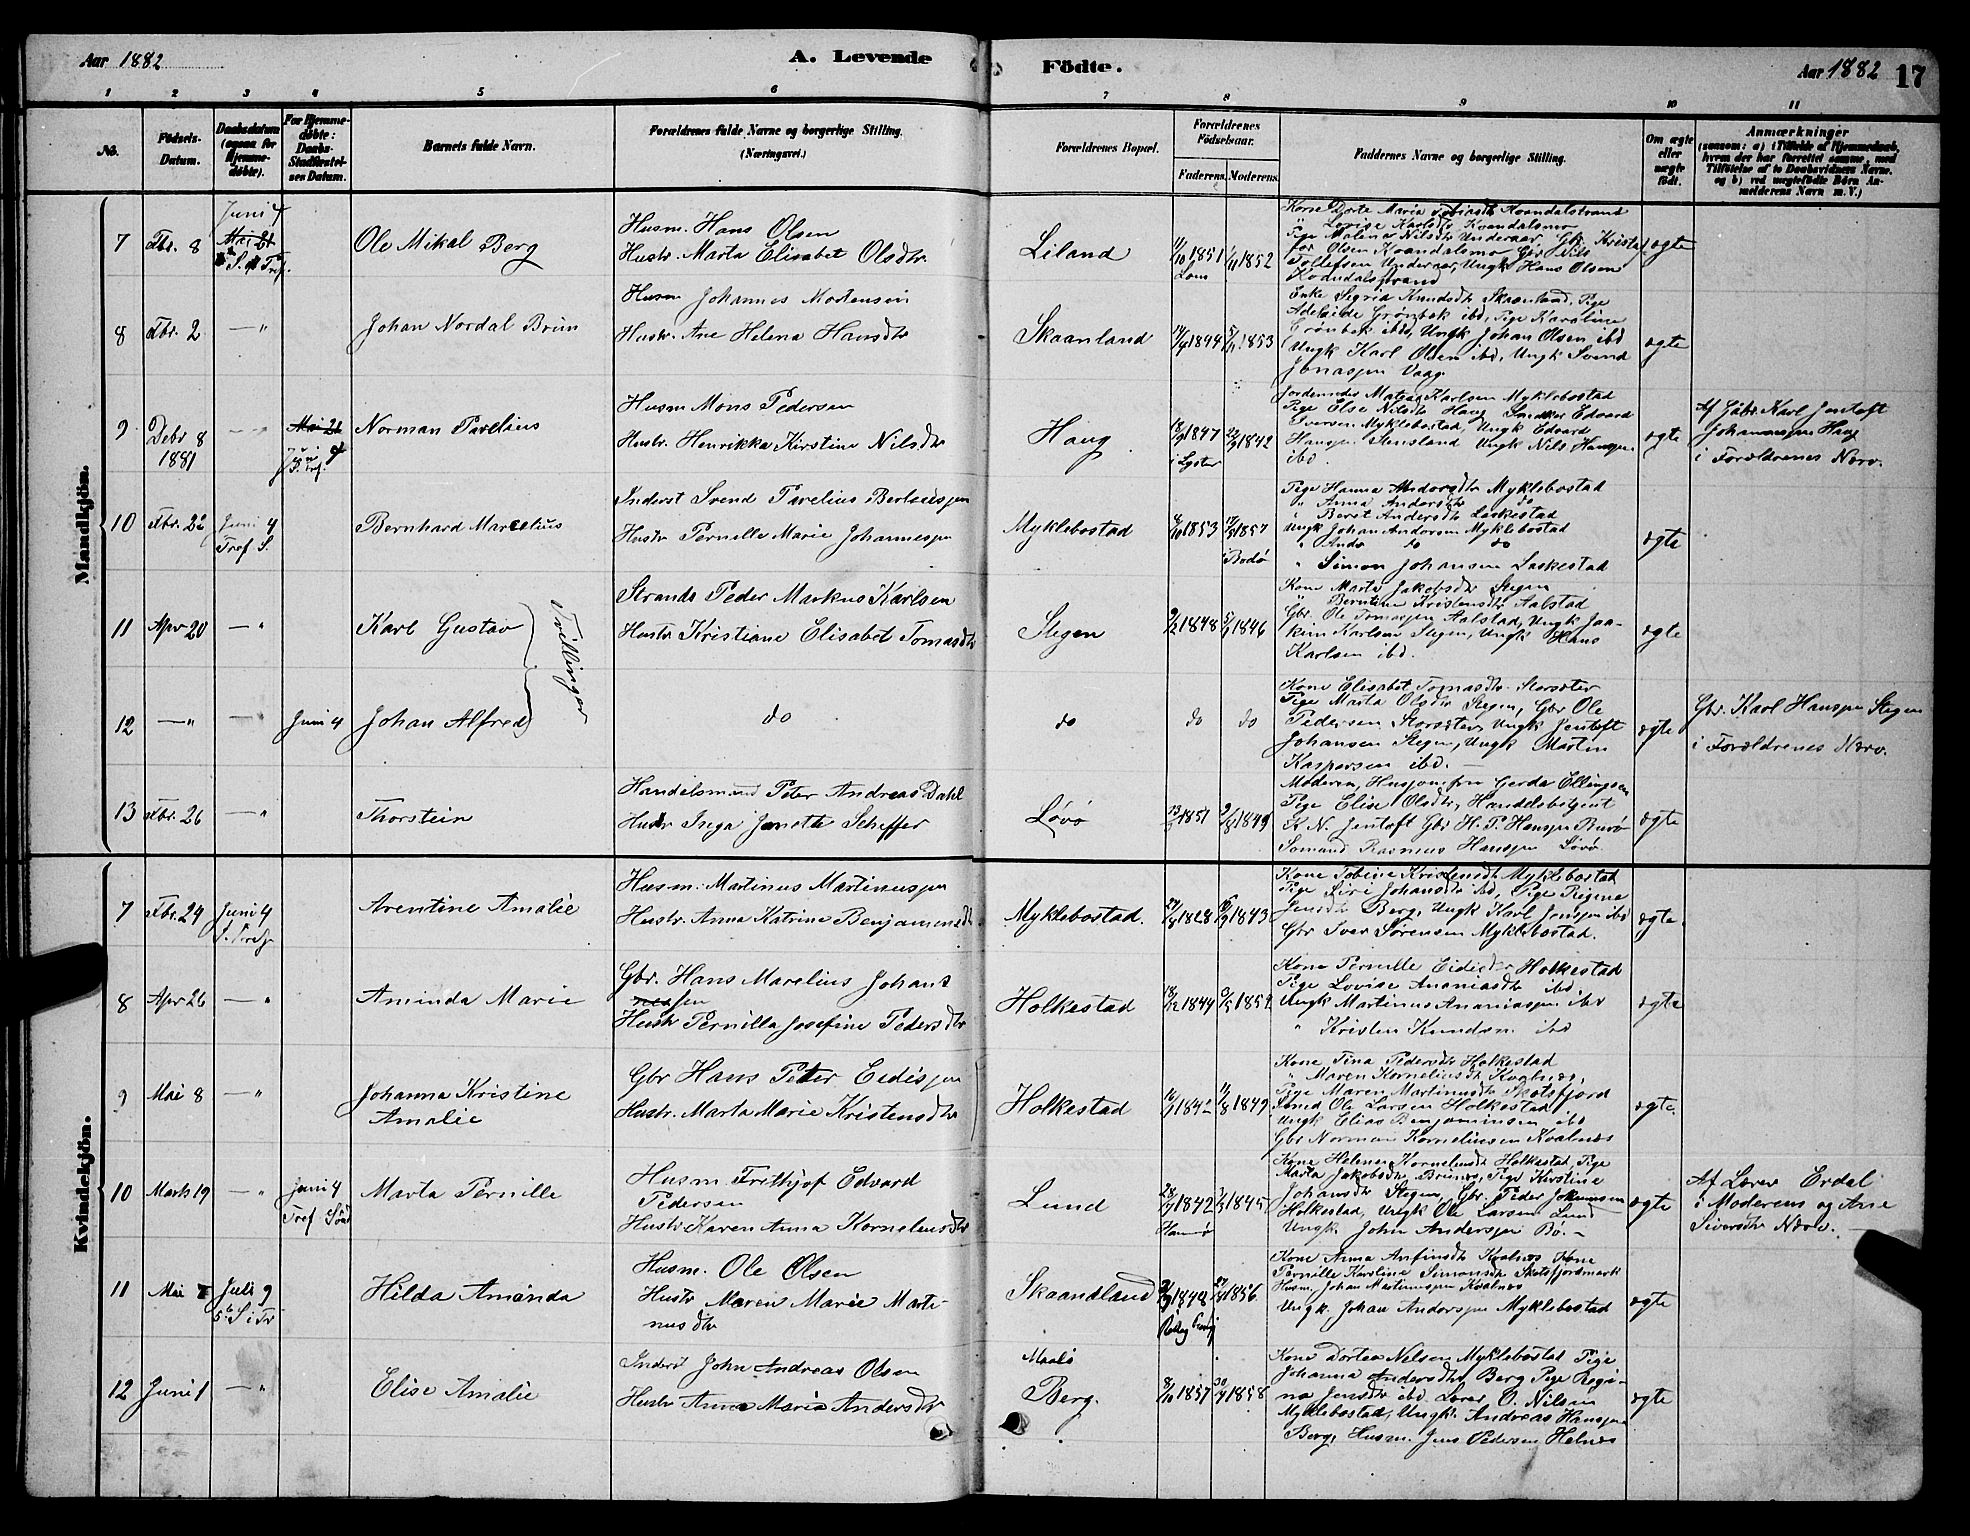 Aar 1882
A. Levende
Födte.
Aar 1882
17
1 2 3 4 5 6 7 8 9 10 11
No.
Födsels-
Datum.
Daabsdatum
(ogsaa for
Hjemme-
døbte).
For Hjemme-
døbte:
Daabs-
Stadfæstel-
ses Datum.
Barnets fulde Navn.
Forældrenes fulde Navne og borgerlige Stilling.
(Næringsvei.)
Forældrenes Bopæl.
Forældrenes
Födselsaar.
Faderens. Moderens.
Faddernes Navne og borgerlige Stilling.
Om ægte
eller
uægte
født.
Anmærkninger
(saasom: a) i Tilfælde af Hjemmedaab,
hvem der har forrettet samme, med
Tilföielse af to Daabsvidners Navne.
og b) ved uægtefödte Börn An-
melderens Navn m. V.)
Mandkjön.
7 Fbr. 8
Juni 4
Mai 21
Ole Mikal Berg
Husm. Hans Olsen
Hustr. Marta Elisabet Olsdtr.
Liland
11/10 1851 1/11 1852
Lom
Kone Dorte Maria Tobiasdtr Kvandalstrand
Lovise Karlsdtr Kvandalsmo
Pige Malina Nilsdtr Underaar, Gbr Kristof
for Olsen Kvandalsmo Gbr Nils
Tollefsen Underaar, Ungk Hans Olsen
Kvandalstrand
ægte
8 Fbr. 2 —"
Johan Nordal Brun
Husm Johannes Mortensen
Hustr. Ane Helena Hansdtr
Skaanland
1844 1853
Enke Sigrid Knudsdtr Skaanland, Pige
Adelaide Grønbek ibd, Pige Karoline
Grønbek ibd, Ungk Johan Olsen ibd
Ungk Karl Olsen ibd, Ungk Svend
Jonassen Vaag
ægte
9 Debr 8
1881
Mai 21
Juni 4
Norman Pavelius
Husm Mons Pedersen
Hustr. Henrikka Kirstine Nilsdtr
Haug
1847 1842
i Lyster
Jordemoder Matea Karlsen Myklebostad
Pige Else Nilsdtr Haug Snedker Edvard
Eversen Myklebostad, Ungk Edvard
Hansen Stensland Ungk Nils Hansen
ibd.
ægte
Af Gbr. Karl Jentoft
Johannessen Haug
i Forældrenes Nærv.
10 Fbr. 22
Juni 4
Tref S.
Bernhard Marcelius
Inderst Svend Pavelius Berteussen
Hustr Pernille Marie Johannessen
Myklebostad
1853 1857
i Bodø
Pige Hanna Andorsdtr Myklebostad
" Anna Andersdtr do
" Beret Andersdtr Laskestad
Ungk Johan Andorsen Myklebostad
" Ando do do
" Simon Johansen Laskestad
ægte
11 Apr 20 —"
Karl Gustav
Trillinger
Strands. Peder Markus Karlsen
Hustr Kristiane Elisabet Tomasdtr
Stegen
9/2 1848 5/9 1846
Kone Marta Jakobsdtr Stegen
" Berntine Kristensdtr Aalstad
Gbr. Ole Tomassen Aalstad, Ungk Joa-
kim Karlsen Stegen, Ungk Hans
Karlsen ibd.
ægte
12 —" —" Juni 4
Johan Alfred
do
do
do do
Kone Elisabet Tomasdtr Storsæter
Pige Marta Olsdtr Stegen, Gbr Ole
Pedersen Storsæter, Ungk Jentoft
Johansen Stegen, Ungk Martin
Kaspersen ibd. —
ægte
Gbr. Karl Hanssen Stegen
i Forældrenes Nærv.
13 Fbr. 26 —"
Thorstein
Handelsmand Peter Andreas Dahl
Hustr Inga Janetta Scheffer
Løvø
1851 1849
Moderen, Husjomfru Gerda Ellingsen
Pige Elise Olsdtr, Handelsbetjent
K. N. Jentoft Gbr H. P. Hanssen Burø
Sømand Rasmus Hanssen Løvø
ægte
Kvindekjön.
7 Fbr. 24
Juni 4
Arentine Amalie
Husm. Martinus Martinussen
Hustr. Anna Katrine Benjaminsdtr
Myklebostad.
1828 1843
Kone Tobine Kristensdtr Myklebostad
Pige Siri Johansdtr ibd, Pige Regine
Jensdtr Berg, Ungk Karl Jenssen ibd
Gbr Iver Sørensen Myklebostad.
ægte.
8 Apr 26 —"
Aminda Marie
Gbr. Hans Marelius Johans
nessen
Hustr Pernilla Josefine Pedersdtr
Holkestad
1844 1854
Kone Pernille Eidisdtr Holkestad
Pige Lovise Ananiasdtr ibd
Ungk Martinus Ananiassen ibd
" Kristen Knudsen ibd
ægte
9 Mai 8 —"
Johanna Kristine
Amalie
Gbr Hans Peter Eidissen
Hustr. Marta Marie Kristensdtr
Holkestad
1842 1849
Kone Tina Pedersdtr Holkestad
" Maren Korneliusdtr Kvalnes,
Pige Maren Martinusdtr Skotsfjord
Ole Larsen Holkestad
Ungk Elias Benjaminsen ibd
Gbr Norman Korneliussen Kvalnes
ægte.
10 Marts 19 —"
Juni 4
Marta Pernille
Husm Frithjof Edvard
Pedersen
Hustr Karen Anna Kornelusdtr
Lund
1842 1845
Hamrø
Kone Helene Kornelusdtr Holkestad, Pige
Marta Jakobsdtr Brunes, Pige Kirstine
Johansdtr Stegen, Gbr. Peder Johannesen
Holkestad, Ungk Ole Larsen Lund
Ungk. John Anderssen Bø. —
ægte
Af Lærer Erdal
i Moderens og Ane
Siversdtr Nærv. —
11 Mai 7
Juli 9
Hilda Aminda
Husm. Ole Olsen
Hustr Maren Marie Marti-
nusdtr
Skaandland
1848 1856
Kone Anna Anfinsdtr Kvalnes Kone
Pernille Karoline Simonsdtr Skotsfjordmark
Husm. Johan Martinussen Kvalnes
Ungk. Johan Andorssen Myklebostad
ægte
12 Juni 1 —"
Elise Amalie
Inderst John Andreas Olsen
Hustr Anna Maria Andersdtr
Berg.
8/10 1857 1858
Kone Dortea Nelsen Myklebostad Pige
Johanna Andersdtr Berg Pige Regi-
na Jensdtr ibd. Lærer O. Nilsen
Myklebostad, Ungk. Andreas Hanssen
Berg, Husm. Jens Pedersen Helnes
ægte